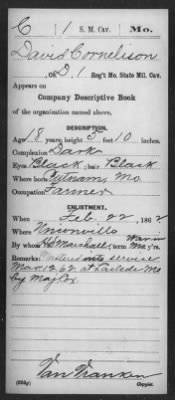 C | 1 | S. M. Cav. | Mo.
David Cornelison
Co. D, 1 Reg't Mo. State Mil. Cav.
Appears on
Company Descriptive Book
of the organization named above.
DESCRIPTION.
Age 18 years; height 5 feet 10 inches.
Complexion Dark
Eyes Black; hair Black
Where born Putnam, Mo.
Occupation Farmer
ENLISTMENT.
When Feb. 22, 1862
Where Unionville
By whom Marshall; term War in Mo. y'rs.
Remarks: Mustered into service
Mar. 12 62 at Laclede Mo
by Maj Cox.
Van Vranken
Copyist.